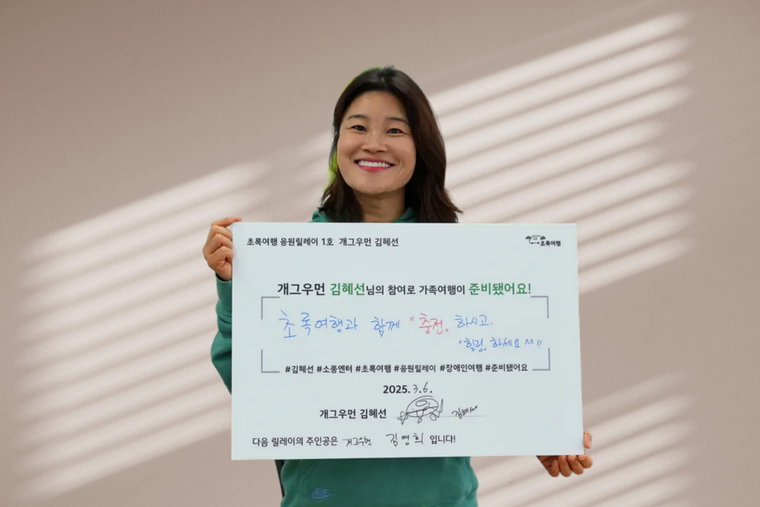 초록여행 응원릴레이 1호 개그우먼 김혜선
초록여행
개그우먼 김혜선님의 참여로 가족여행이 준비됐어요!
초록여행과 함께 "충전" 하시고,
"힐링" 하세요 ^^!!
#김혜선 #소풍엔터 #초록여행 #응원릴레이 #장애인여행 #준비됐어요
2025. 3. 6.
개그우먼 김혜선
다음 릴레이의 주인공은 개그우먼 김영희 입니다!